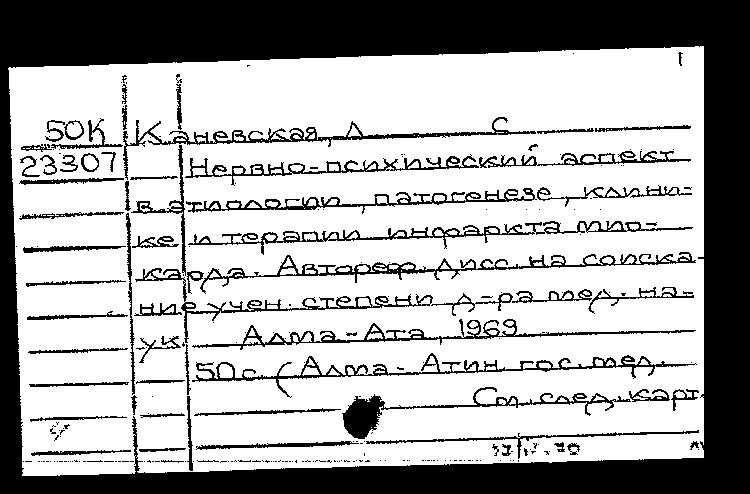 1
50К Каневская, Л С
23307 Нервно-психический аспект
в этиологии, патогенезе, клини-
ке и терапии инфаркта мио-
карда. Автореф. дисс. на соиска-
ние учен. степени д-ра мед. на-
ук. Алма-Ата, 1969
50 с (Алма-Атин гос. мед.
См. след. карт.